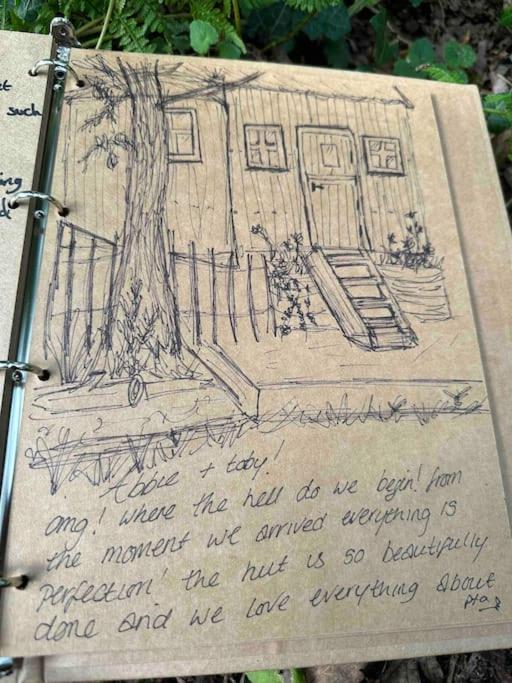 et
such
ing
d
Abbie + toby!
omg! where the hell do we begin! from
the moment we arrived everything is
perfection! the hut is so beautifully
done and we love everything about
pto